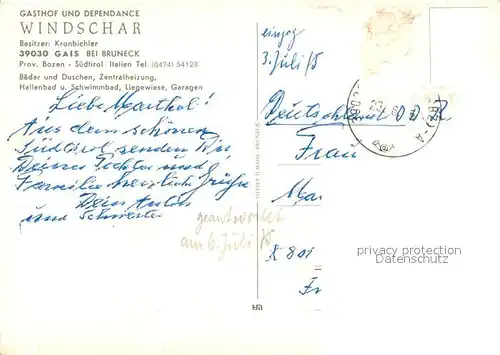 GASTHOF UND DEPENDANCE
WINDSCHAR
Besitzer: Kronbichler
39030 GAIS BEI BRUNECK
Prov. Bozen - Südtirol Italien Tel. (0474) 54123
Bäder und Duschen, Zentralheizung,
Hallenbad u. Schwimmbad, Liegewiese, Garagen
Aus dem schönen
Südtirol senden Dir
Deine Tochter und
Familie herzliche Grüße
Dein Anton
und Schwester
geantwortet
am 6. Juli 75
3. Juli 75
Deutschland D.D.R.
Frau
Mar
X 801
Fr
privacy protection
Datenschutz